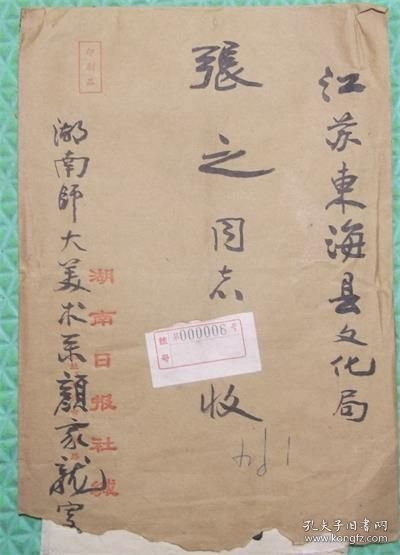 江苏東海县文化局
張之同志收
湖南師大美术系顔家龍寄
湖南日报社緘
印刷品
挂号
第000008号
孔夫子旧书网
www.kongfz.com